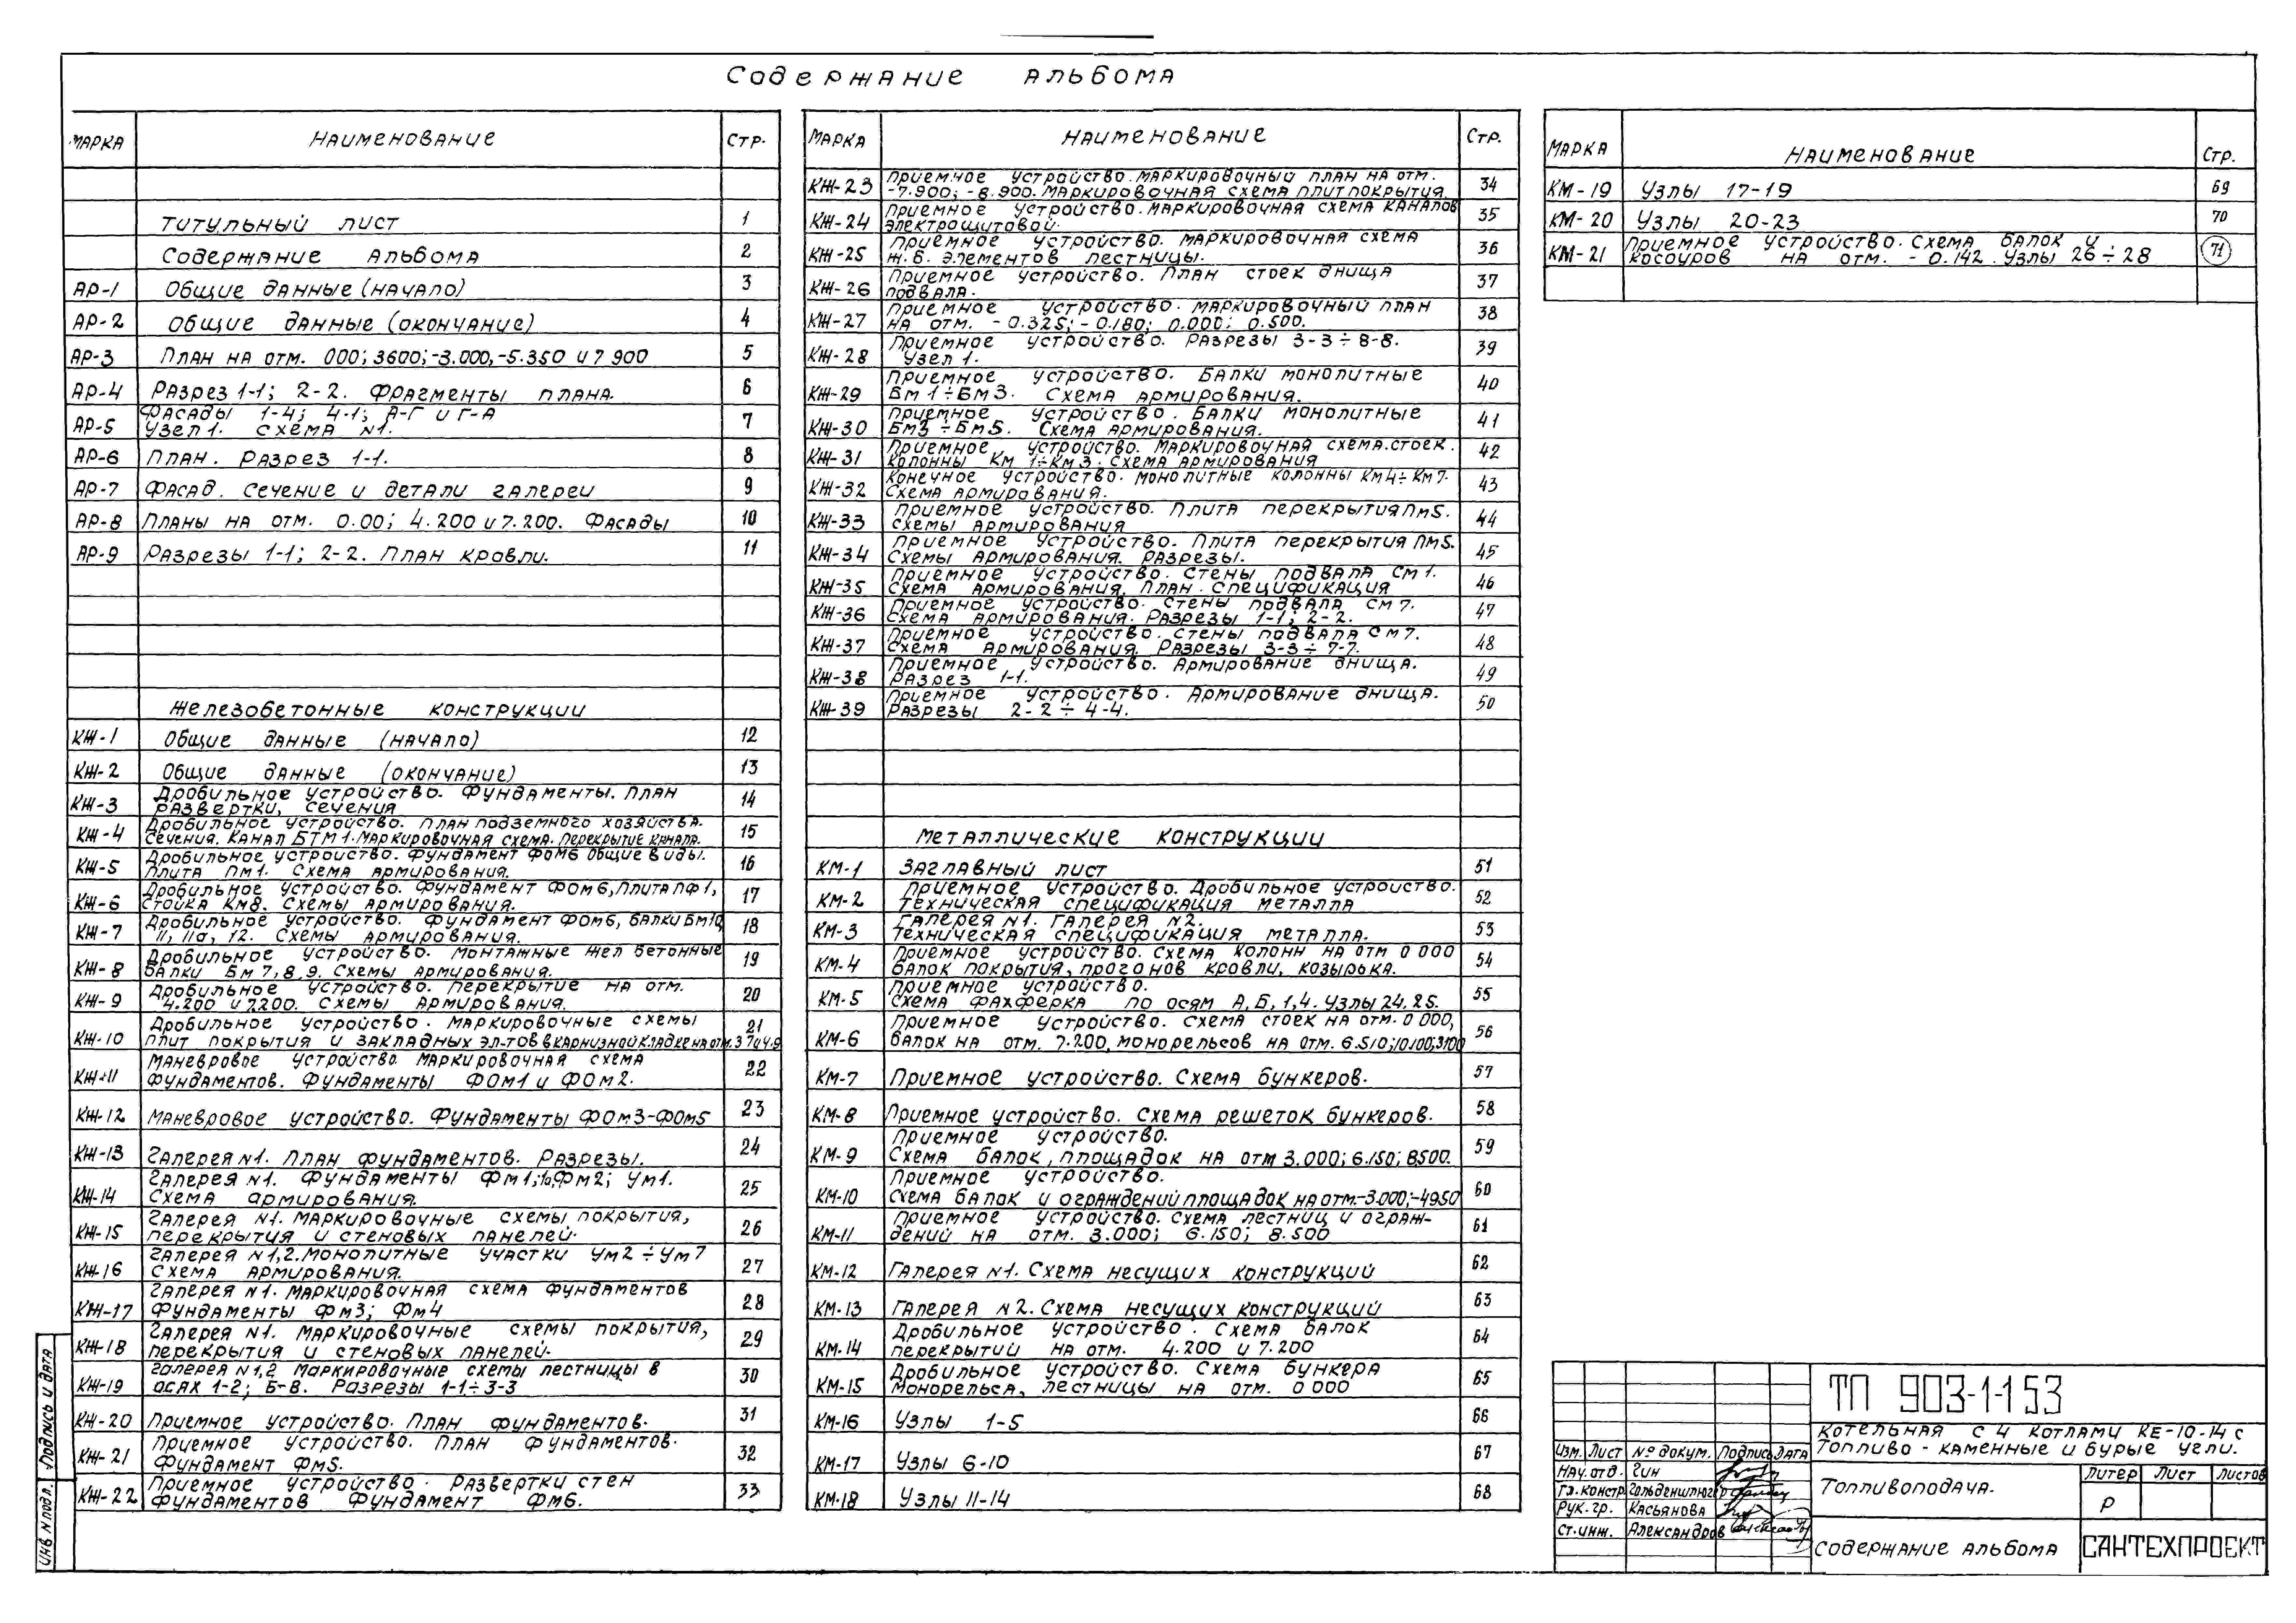 Содержание альбома
Марка Наименование Стр.
Титульный лист 1
Содержание альбома 2
АР-1 Общие данные (начало) 3
АР-2 Общие данные (окончание) 4
АР-3 План на отм. 000; 3600; -3.000, -5.350 и 7 900 5
АР-4 Разрез 1-1; 2-2. Фрагменты плана. 6
АР-5 Фасады 1-4; 4-1; А-Г и Г-А
Узел 1. Схема N1. 7
АР-6 План. Разрез 1-1. 8
АР-7 Фасад. Сечение и детали галереи 9
АР-8 Планы на отм. 0.00; 4.200 и 7.200. Фасады 10
АР-9 Разрезы 1-1; 2-2. План кровли. 11
Железобетонные конструкции
КЖ-1 Общие данные (начало) 12
КЖ-2 Общие данные (окончание) 13
КЖ-3 Дробильное устройство. Фундаменты. План
развертки, сечения 14
КЖ-4 Дробильное устройство. План подземного хозяйства.
Сечения. Канал БТМ1. Маркировочная схема. Перекрытие канала. 15
КЖ-5 Дробильное устройство. Фундамент ФОм6 Общие виды.
Плита Пм1. Схема армирования. 16
КЖ-6 Дробильное устройство. Фундамент ФОм6, плита ПФ1,
Стойка Кмд. Схемы армирования. 17
КЖ-7 Дробильное устройство. Фундамент ФОм6, балки Бм10,
11, 11а, 12. Схемы армирования. 18
КЖ-8 Дробильное устройство. Монтажные жел бетонные
балки Бм 7, 8, 9. Схемы армирования. 19
КЖ-9 Дробильное устройство. Перекрытие на отм.
4.200 и 7.200. Схемы армирования. 20
КЖ-10 Дробильное устройство. Маркировочные схемы
плит покрытия и закладных эл-тов в карнизной кладке на отм. 21
КЖ-11 Маневровое устройство маркировочная схема
фундаментов. Фундаменты ФОм1 и ФОм2. 22
КЖ-12 Маневровое устройство. Фундаменты ФОм3-ФОм5 23
КЖ-13 Галерея N1. План фундаментов. Разрезы. 24
КЖ-14 Галерея N1. Фундаменты Фм1, 1а, Фм2; Ум1.
Схема армирования. 25
КЖ-15 Галерея N1. Маркировочные схемы покрытия,
перекрытия и стеновых панелей. 26
КЖ-16 Галерея N1,2. Монолитные участки Ум2÷Ум7
Схема армирования. 27
КЖ-17 Галерея N1. Маркировочная схема фундаментов
Фундаменты Фм3; Фм4 28
КЖ-18 Галерея N1. Маркировочные схемы покрытия,
перекрытия и стеновых панелей. 29
КЖ-19 Галерея N1,2 Маркировочные схемы лестницы в
осях 1-2; Б-В. Разрезы 1-1÷3-3 30
КЖ-20 Приемное устройство. План фундаментов. 31
КЖ-21 Приемное устройство. План фундаментов.
Фундамент Фм5. 32
КЖ-22 Приемное устройство. Развертки стен
фундаментов Фундамент Фм6. 33
Марка Наименование Стр.
КЖ-23 Приемное устройство. Маркировочный план на отм.
-7.900; -8.900. Маркировочная схема плит покрытия 34
КЖ-24 Приемное устройство. Маркировочная схема каналов
электрощитовой. 35
КЖ-25 Приемное устройство. Маркировочная схема
ж.б. элементов лестницы. 36
КЖ-26 Приемное устройство. План стоек днища
подвала. 37
КЖ-27 Приемное устройство. Маркировочный план
на отм. -0.325; -0.180; 0.000; 0.500. 38
КЖ-28 Приемное устройство. Разрезы 3-3÷8-8.
Узел 1. 39
КЖ-29 Приемное устройство. Балки монолитные
Бм1÷Бм3. Схема армирования. 40
КЖ-30 Приемное устройство. Балки монолитные
Бм3÷Бм5. Схема армирования. 41
КЖ-31 Приемное устройство. Маркировочная схема.стоек.
Колонны Км 1÷Км3. Схема армирования 42
КЖ-32 Конечное устройство. Монолитные колонны Км4÷Км7.
Схема армирования. 43
КЖ-33 Приемное устройство. Плита перекрытия Пм5.
Схемы армирования 44
КЖ-34 Приемное устройство. Плита перекрытия Пм5.
Схемы армирования. Разрезы. 45
КЖ-35 Приемное устройство. Стены подвала См 1.
Схема армирования. План. Спецификация 46
КЖ-36 Приемное устройство. Стены подвала См 7.
Схема армирования. Разрезы 1-1; 2-2. 47
КЖ-37 Приемное устройство. Стены подвала См 7.
Схема армирования. Разрезы 3-3÷7-7. 48
КЖ-38 Приемное устройство. Армирование днища.
Разрез 1-1. 49
КЖ-39 Приемное устройство. Армирование днища.
Разрезы 2-2÷4-4. 50
Металлические конструкции
КМ-1 Заглавный лист 51
КМ-2 Приемное устройство. Дробильное устройство.
Техническая спецификация металла 52
КМ-3 Галерея N1. Галерея N2.
Техническая спецификация металла. 53
КМ-4 Приемное устройство. Схема колонн на отм 0 000
балок покрытия, прогонов кровли, козырька. 54
КМ-5 Приемное устройство.
Схема фахферка по осям А, Б, 1, 4. Узлы 24. 25. 55
КМ-6 Приемное устройство. Схема стоек на отм. 0 000,
балок на отм. 7.200, монорельсов на отм. 6.510; 10.100; 3100 56
КМ-7 Приемное устройство. Схема бункеров. 57
КМ-8 Приемное устройство. Схема решеток бункеров. 58
КМ-9 Приемное устройство.
Схема балок, площадок на отм 3.000; 6.150; 8.500. 59
КМ-10 Приемное устройство.
Схема балок и ограждений площадок на отм.-3.000; -4950 60
КМ-11 Приемное устройство. Схема лестниц и ограж-
дений на отм. 3.000; 6.150; 8.500 61
КМ-12 Галерея N1. Схема несущих конструкций 62
КМ-13 Галерея N2. Схема несущих конструкций 63
КМ-14 Дробильное устройство. Схема балок
перекрытий на отм. 4.200 и 7.200 64
КМ-15 Дробильное устройство. Схема бункера
Монорельса, лестницы на отм. 0 000 65
КМ-16 Узлы 1-5 66
КМ-17 Узлы 6-10 67
КМ-18 Узлы 11-14 68
Марка Наименование Стр.
КМ-19 Узлы 17-19 69
КМ-20 Узлы 20-23 70
КМ-21 Приемное устройство. Схема балок и
косоуров на отм. -0.142. Узлы 26÷28 71
ТП 903-1-153
Котельная с 4 котлами КЕ-10-14 с
Топливо - каменные и бурые угли.
Изм. Лист № докум. Подпись Дата
Нач. отд. Гин
Гл. констр Гольденштюгер
Рук. гр. Касьянова
Ст. инж. Александров
Топливоподача.
Литер Лист Листов
Р
Содержание альбома
САНТЕХПРОЕКТ
Подпись и дата
Инв N подл.